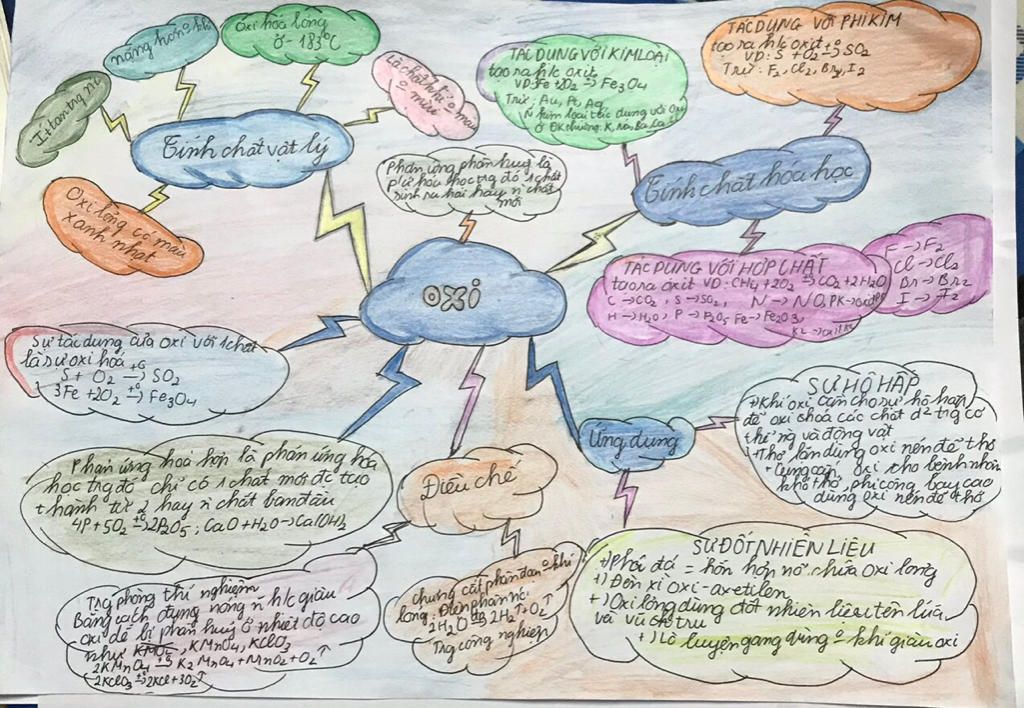 OXI
Tính chất vật lý
nặng hơn o khí
Oxi hóa lỏng
ở -183°C
Là chất khí o màu
o mùi
Ít tan trg nc
Oxi lỏng có màu
xanh nhạt
Phản ứng phân huỷ là
hóa học trg đó 1 chất
sinh ra hai hay n chất
mới
Tính chất hóa học
TÁC DỤNG VỚI KIM LOẠI
tạo ra h/c oxit
VD: Fe + O2 → Fe3O4
Trừ: Au, Pt, Ag
N kim loại tác dụng với Oxi
ở ĐK thường: K, Na, Ba, Ca
TÁC DỤNG VỚI PHI KIM
tạo ra h/c oxit
VD: S + O2 → SO2
Trừ: F2, Cl2, Br2, I2
TÁC DỤNG VỚI HỢP CHẤT
tạo ra oxit VD: CH4 + 2O2 → CO2 + 2H2O
C → CO2, S → SO2, N → NO, PK →
H → H2O, P → P2O5 Fe → Fe2O3,
F → F2
Cl → Cl2
Br → Br2
I → I2
Sự tác dụng của oxi với 1 chất
là sự oxi hoá
S + O2 →(t°) SO2
3Fe + 2O2 →(t°) Fe3O4
Phản ứng hoá hợp là phản ứng hóa
học trg đó chỉ có 1 chất mới đc tạo
thành từ 2 hay n chất ban đầu
4P + 5O2 →(t°) 2P2O5; CaO + H2O → Ca(OH)2
Điều chế
Trg phòng thí nghiệm
Bằng cách đun nóng n h/c giàu
oxi dễ bị phân huỷ ở nhiệt độ cao
như KMnO4, KClO3
2KMnO4 →(t°) K2MnO4 + MnO2 + O2↑
2KClO3 →(t°) 2KCl + 3O2↑
Chưng cất phân đoạn o khí
lỏng. Điện phân nc
2H2O → 2H2↑ + O2↑
Trg công nghiệp
Ứng dụng
SỰ HÔ HẤP
+) Khí oxi cần cho sự hô hấp
để oxi hoá các chất d2 trg cơ
thể ng và động vật
+ Thợ lặn dùng oxi nén để thở
+ Cung cấp oxi cho bệnh nhân
khó thở, phi công bay cao
dùng oxi nén để thở
SỰ ĐỐT NHIÊN LIỆU
+) Phá đá = hỗn hợp nổ chứa oxi lỏng
+) Đèn xì oxi-axetilen
+) Oxi lỏng dùng đốt nhiên liệu tên lửa
và vũ trụ
+) Lò luyện gang dùng o khí giàu oxi